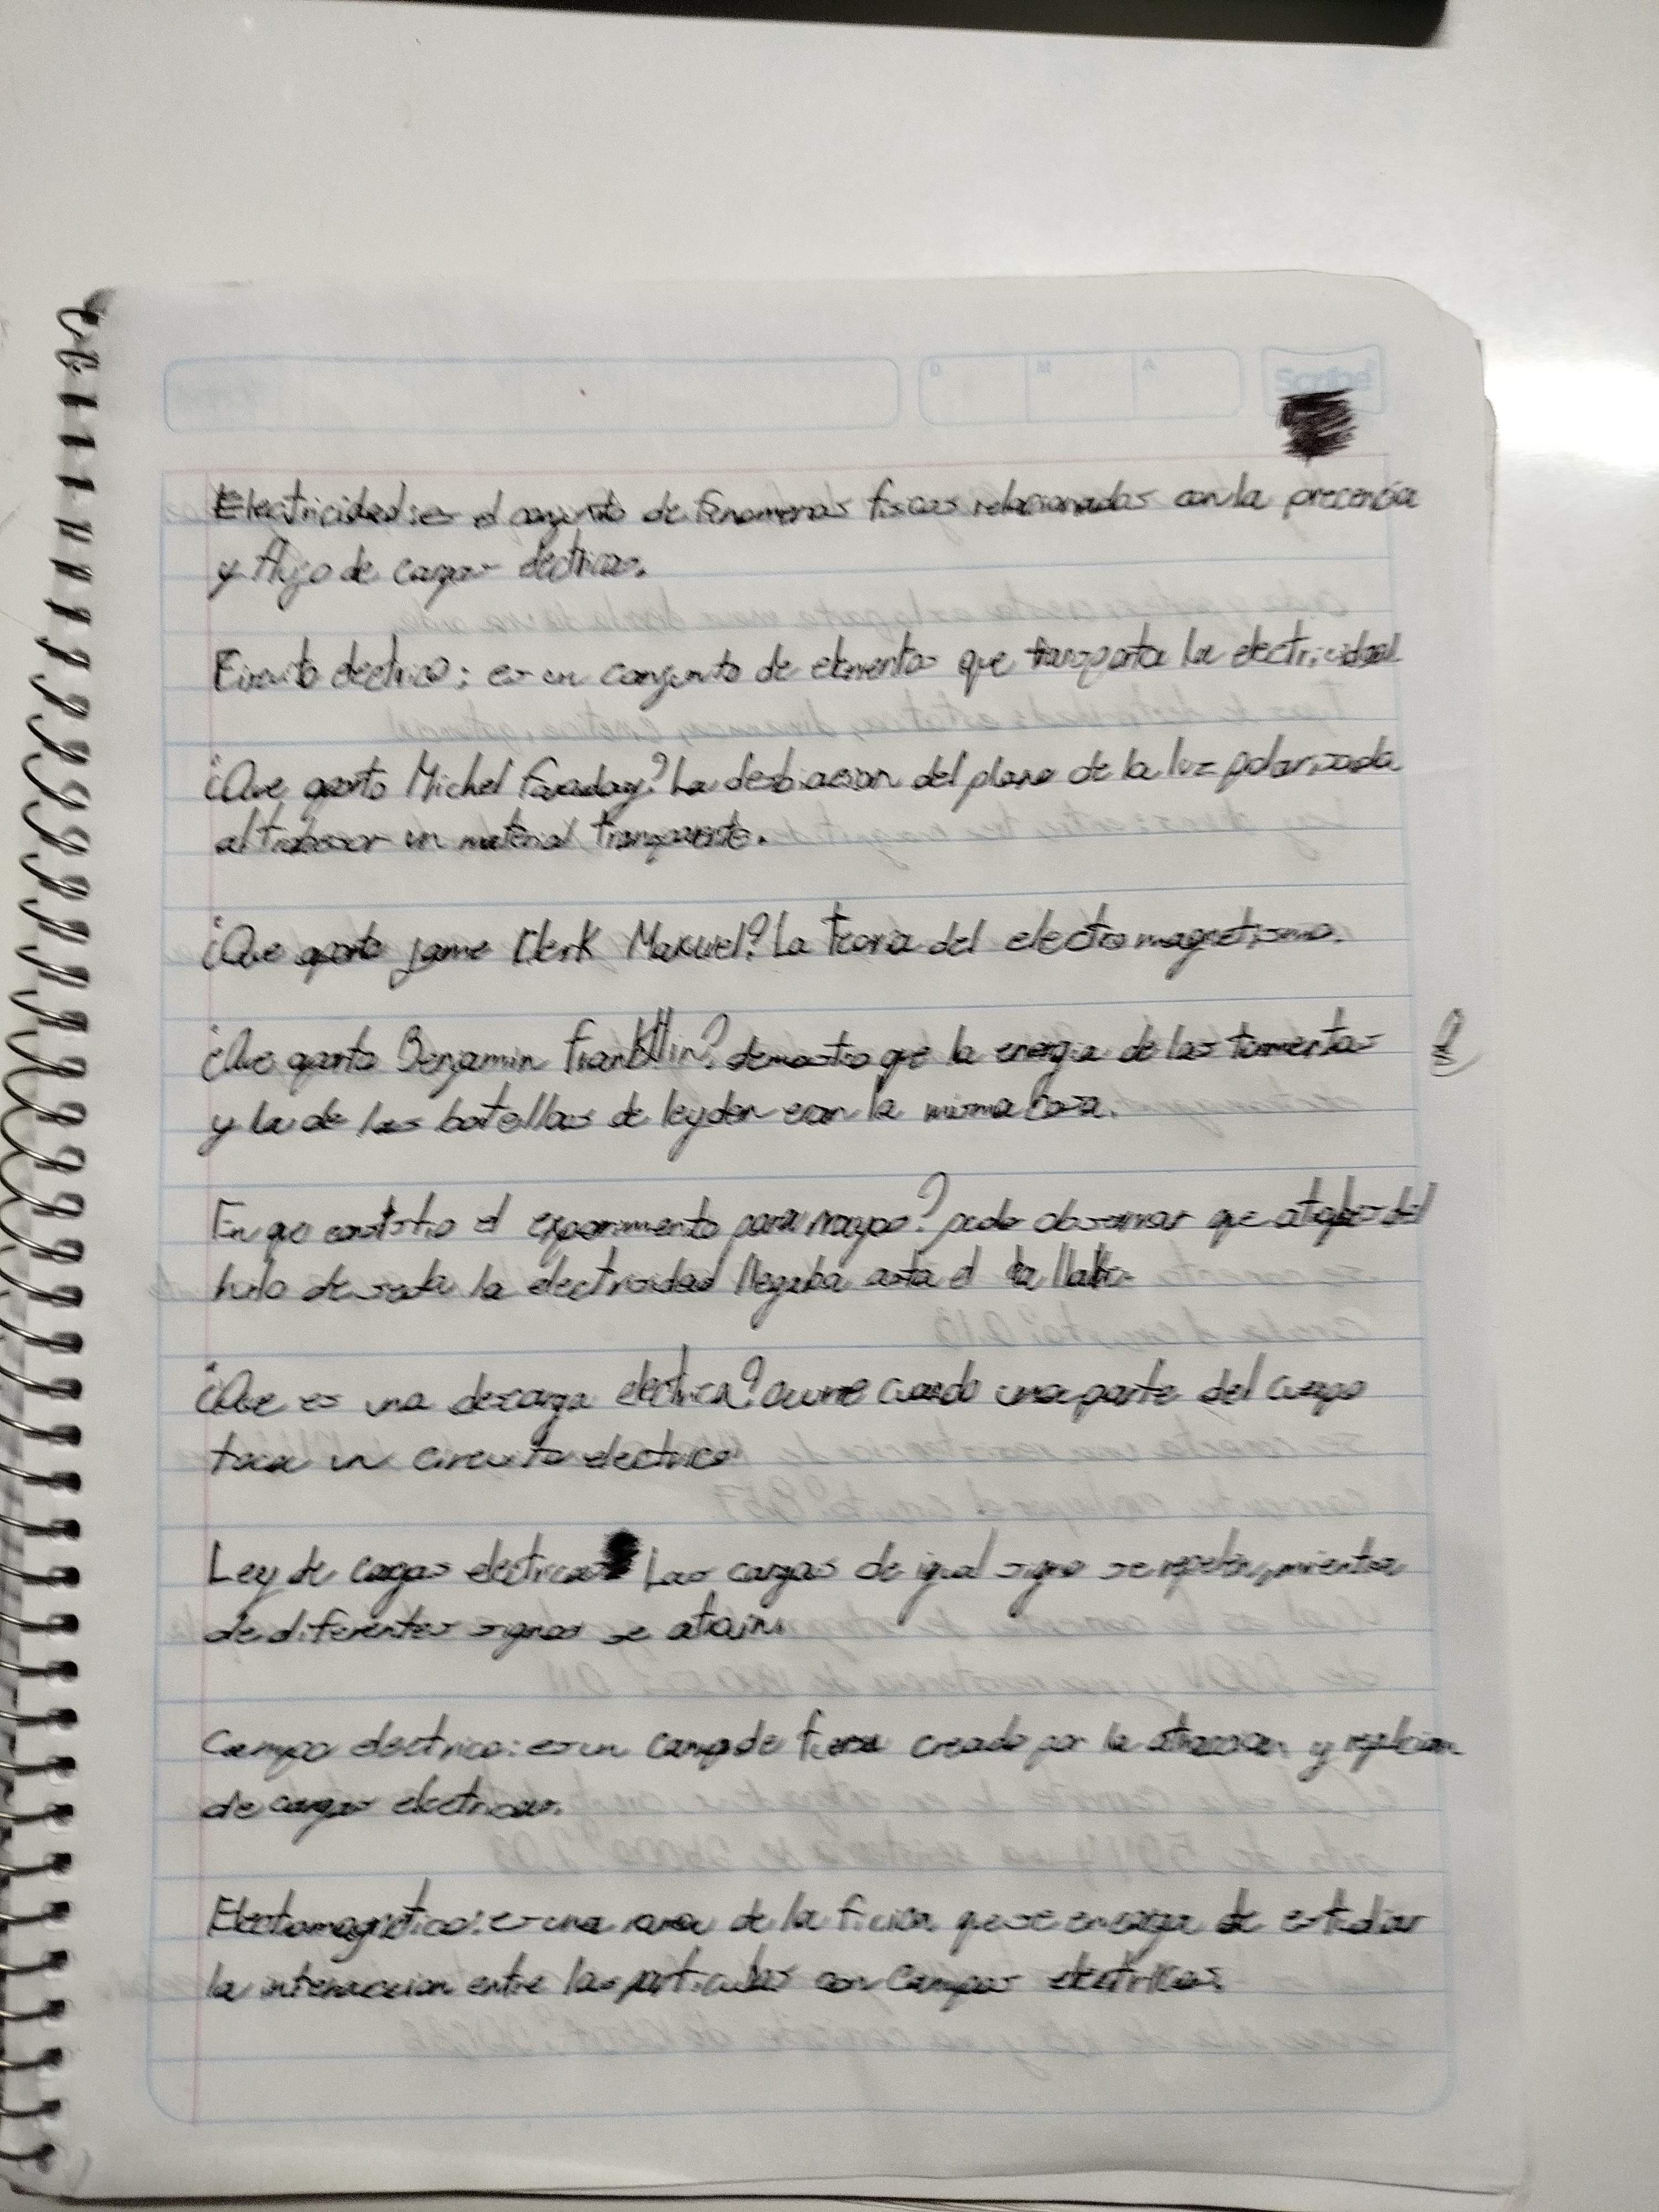 D M A Scribe
Electricidad: es el conjunto de fenomenos fisicos relacionados con la precencia
y flujo de cargas electricas.
Circuito electrico: es un conjunto de elementos que transporta la electricidad
¿Que aporto Michel Faraday? La desbiacion del plano de la luz polarizada
al trabesar un material transparente.
¿Que aporto jame Clerk Maxwel? La teoria del electromagnetismo.
¿Que aporto Benjamin Franklin? demostro que la energia de las tormentas
y la de las botellas de leyden eran la misma cosa.
En que consistio el experimento pararrayos? pudo observar que atabes del
hilo de seda la electricidad llegaba asta el la llabe
¿Que es una descarga electrica? ocurre cuando una parte del cuerpo
toca un circuito electrico
Ley de cagas electricas Las cargas de igual signo se repelen, mientras
de diferentes signos se atrain.
Campo electrico: es un campo de fuerza creado por la atraccion y repulcion
de cargas electricas.
Electromagnetico: es una rama de la ficica que se encarga de estudiar
la interaccion entre las particulas con campos electricos.